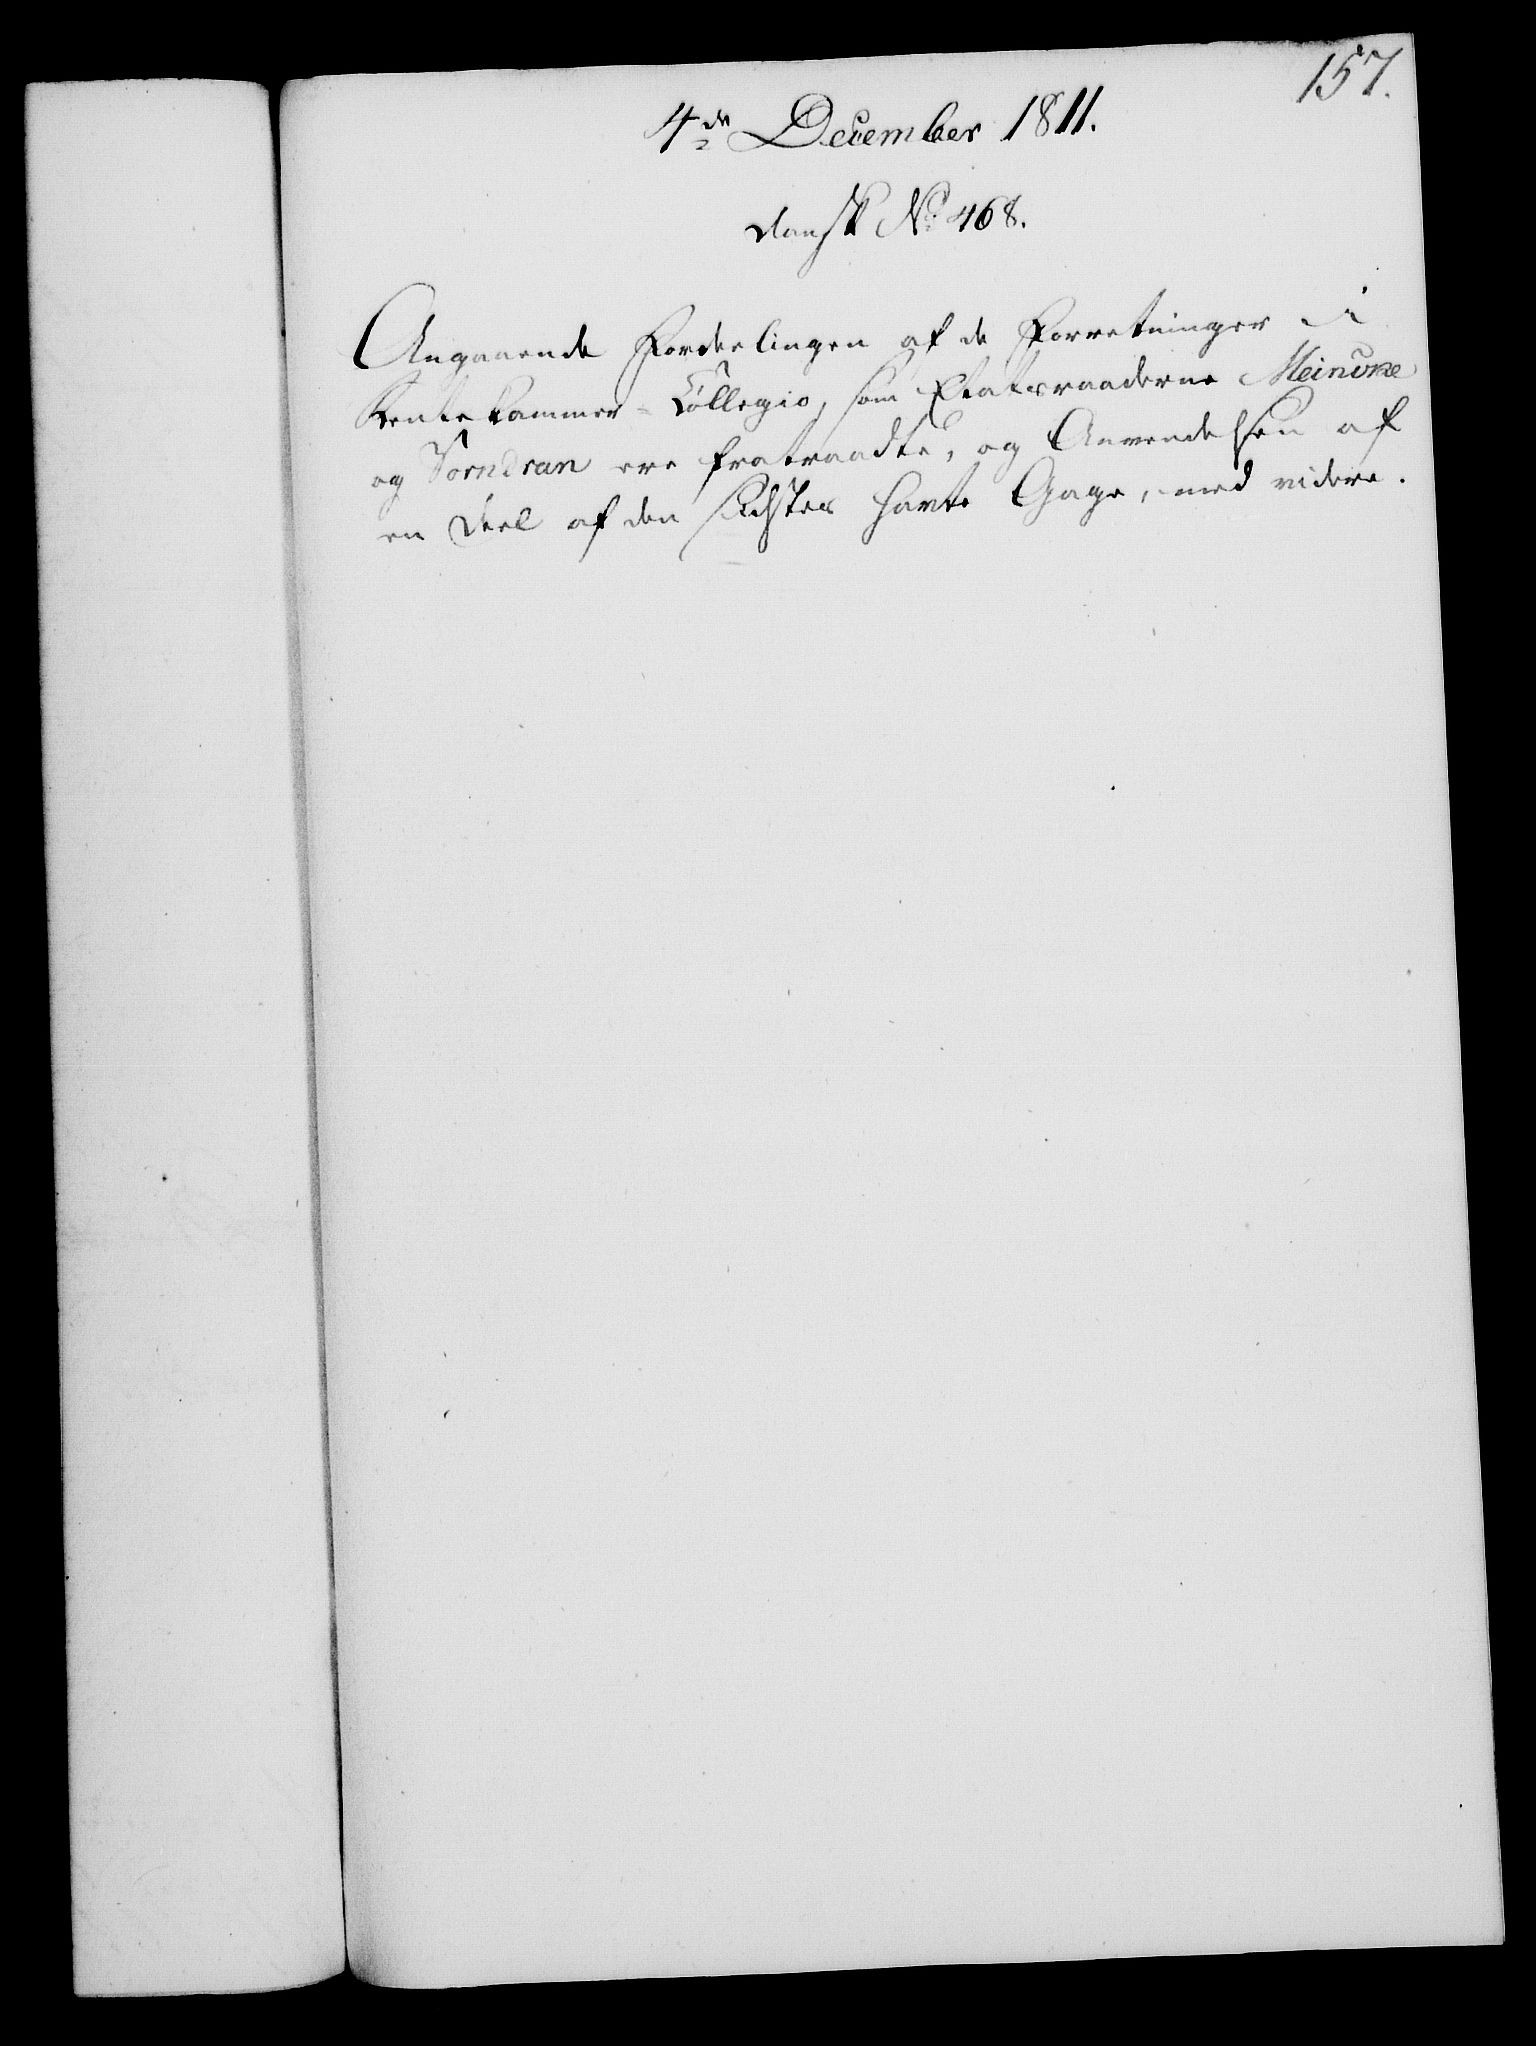 157.
4de December 1811.
dansk No 468.
Angaaende Fordeelingen af de Forretninger i
Rentekammer-Collegio, som Etatsraaderne Meincke
og Sorndran ere fratraadte, og Anvendelsen af
en Deel af den Sidstes havte Gage, med videre.